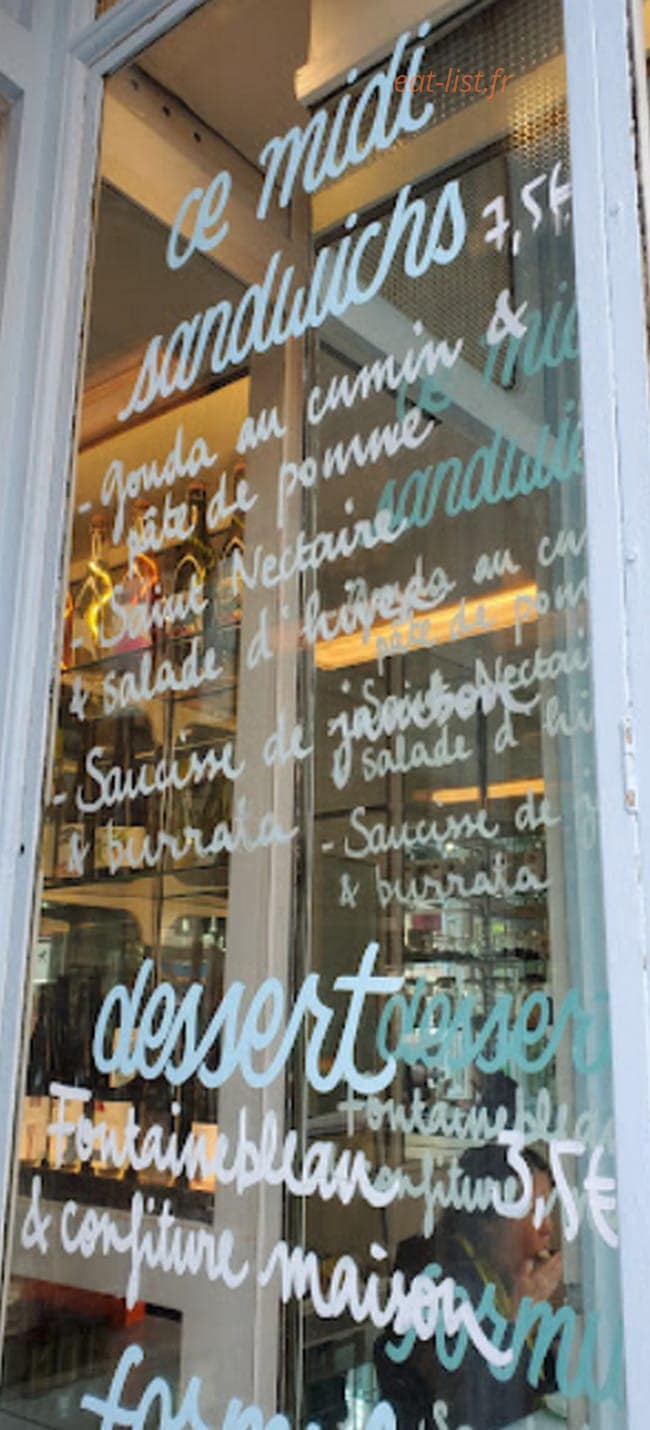 eat-list.fr
ce midi
sandwichs 7,5€
- Gouda au cumin &
pâte de pomme
- Saint Nectaire
& salade d'hiver
- Saucisse de jambon
& burrata
dessert
Fontainebleau 3,5€
& confiture maison
formul